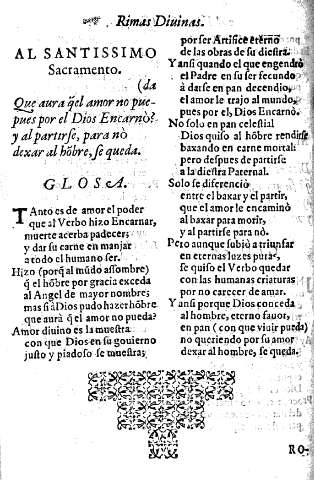 Rimas Diuinas.
AL SANTISSIMO
Sacramento.
(da
Que aura q̃el amor no pue-
pues por el Dios Encarnò?
y al partirse, para nò
dexar al hõbre, se queda.
GLOSA.
TAnto es de amor el poder
que al Verbo hizo Encarnar,
muerte acerba padecer;
y dar su carne en manjar
a todo el humano ser.
Hizo (porq̃ al mũdo assombre)
q̃ el hõbre por gracia exceda
al Angel de mayor nombre;
mas si à Dios pudo hazer hõbre
que aurà q̃ el amor no pueda?
Amor diuino es la muestra
con que Dios en su gouierno
justo y piadoso se muestra;
por ser Artifice eterno
de las obras de su diestra.
Y ansi quando el que engendrò
el Padre en su ser fecundo
à darse en pan decendio,
el amor le trajo al mundo,
pues por el, Dios Encarnò.
No solo en pan celestial
Dios quiso al hõbre rendirse
baxando en carne mortal:
pero despues de partirse
a la diestra Paternal.
Solo se diferenciò
entre el baxar y el partir,
que el amor le encaminò
al baxar para morir,
y al partirse para nò.
Pero aunque subiò a triunfar
en eternas luzes puras,
se quiso el Verbo quedar
con las humanas criaturas
por no carecer de amar.
Y ansi porque Dios conceda
al hombre, eterno fauor,
en pan (con que viuir pueda)
no queriendo por su amor
dexar al hombre, se queda.
RO-